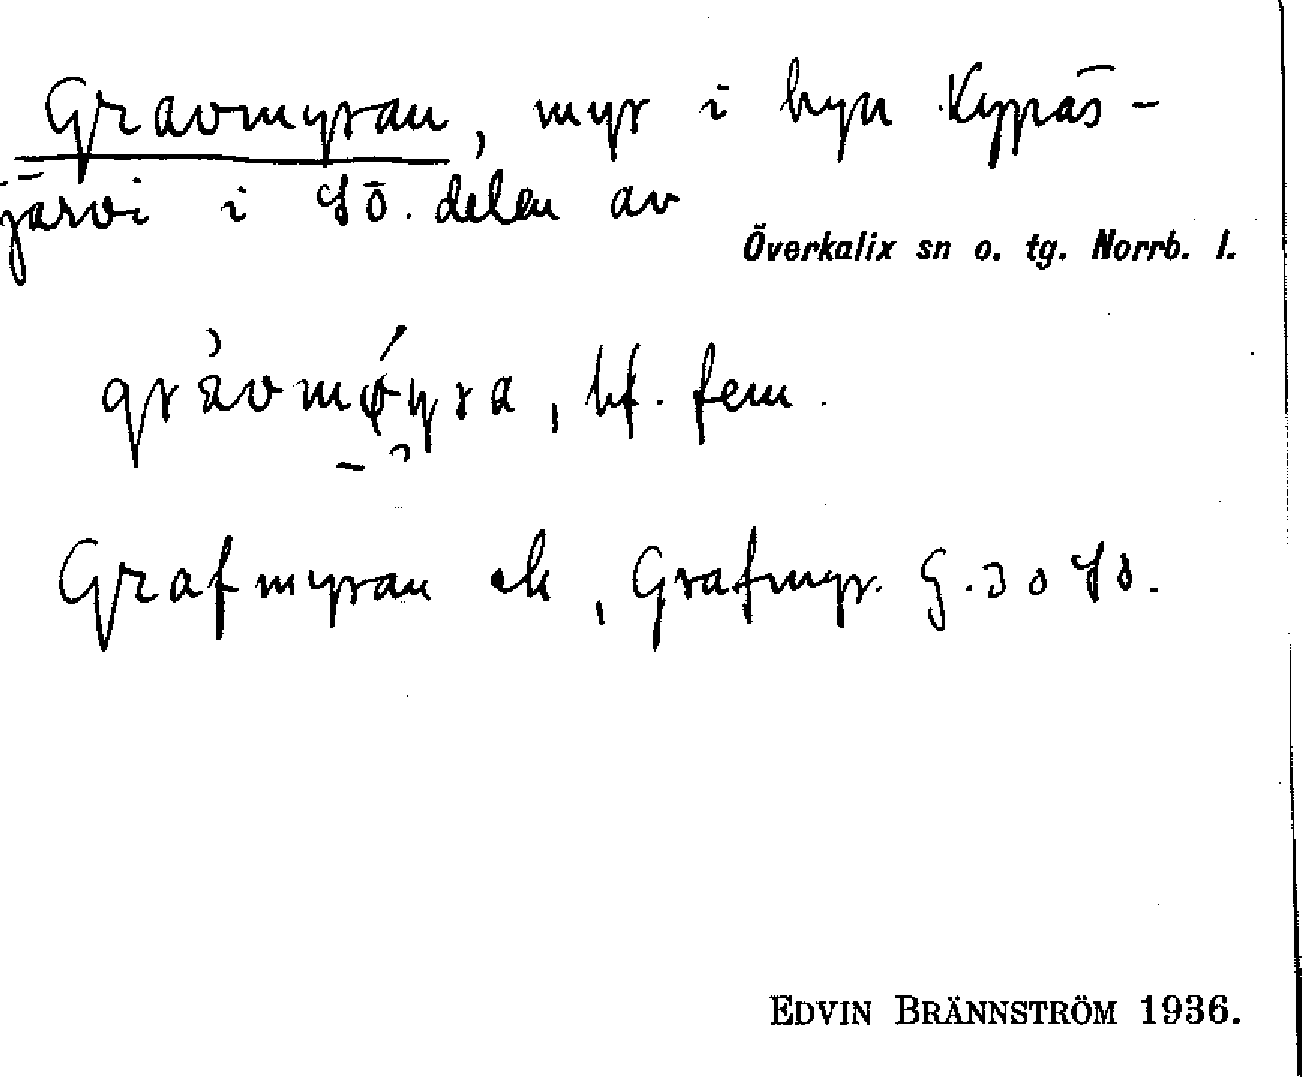 Gravmyran, myr i byn Kypäs-
järvi i sö. delen av
Överkalix sn o. tg. Norrb. l.
bf. fem.
Grafmyran ek, Grafmyr. G. 30 sö.
EDVIN BRÄNNSTRÖM 1936.